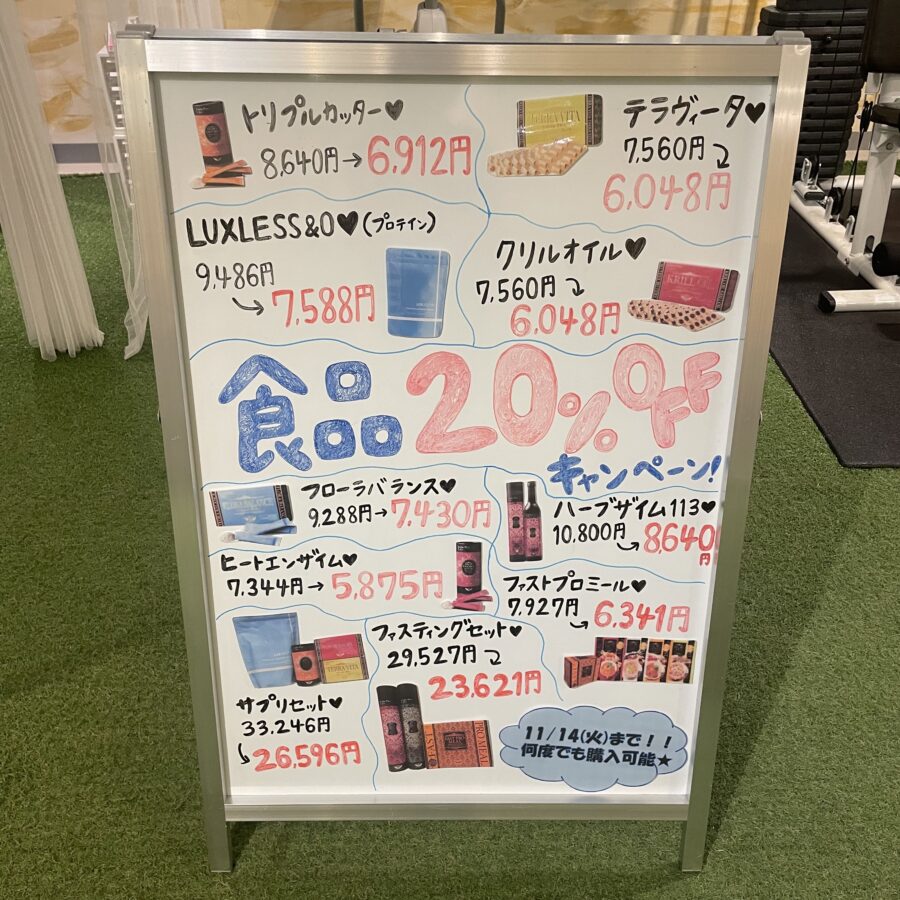 トリプルカッター♥
8,640円→6,912円
テラヴィータ♥
7,560円
6,048円
TERRA VITA
LUXLESS&O♥(プロテイン)
9,486円
→7,588円
クリルオイル♥
7,560円
6,048円
KRILL OIL
食品20%OFF
キャンペーン!
フローラバランス♥
9,288円→7,430円
FLORA BALANCE
ハーブザイム113♥
10,800円
→8,640円
ヒートエンザイム♥
7,344円→5,875円
ファストプロミール♥
7,927円
→6,341円
ファスティングセット♥
29,527円
23,621円
TERRA VITA
サプリセット♥
33,246円
→26,596円
11/14(火)まで!!
何度でも購入可能★